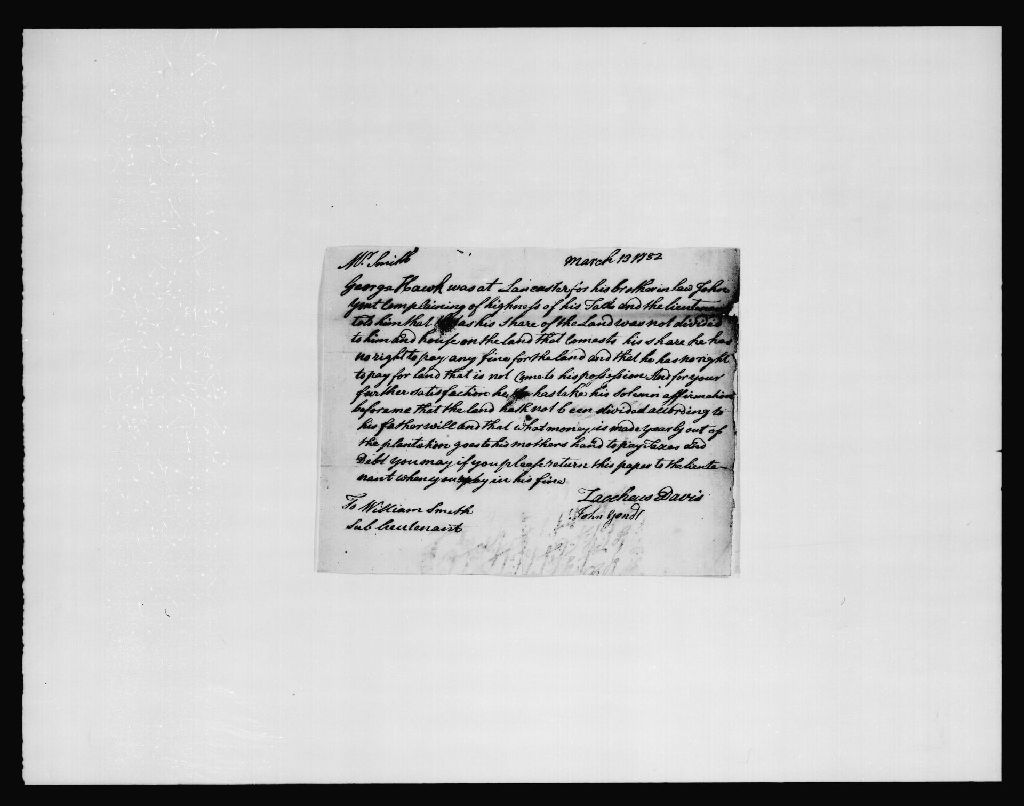 Mr Smith March 13 1782
George Hawk was at Lancaster for his brother in law John
Yont Complaining of highness of his Tax and the lieutenant
told him that as his share of the Land was not divided
to him and house on the land that Comes to his share he has
no right to pay any fine for the land and that he has no right
to pay for land that is not Come to his possession And for your
farther satisfaction he has take his solemn affirmation
before me that the land hath not been divided according to
his father will and that what money is made yearly out of
the plantation goes to his mothers hand to pay Taxes and
Debt you may if you please return this paper to the lieute-
nant when you pay in his fine
Zaccheus Davis
To William Smith John Yondt
Sub lieutenant